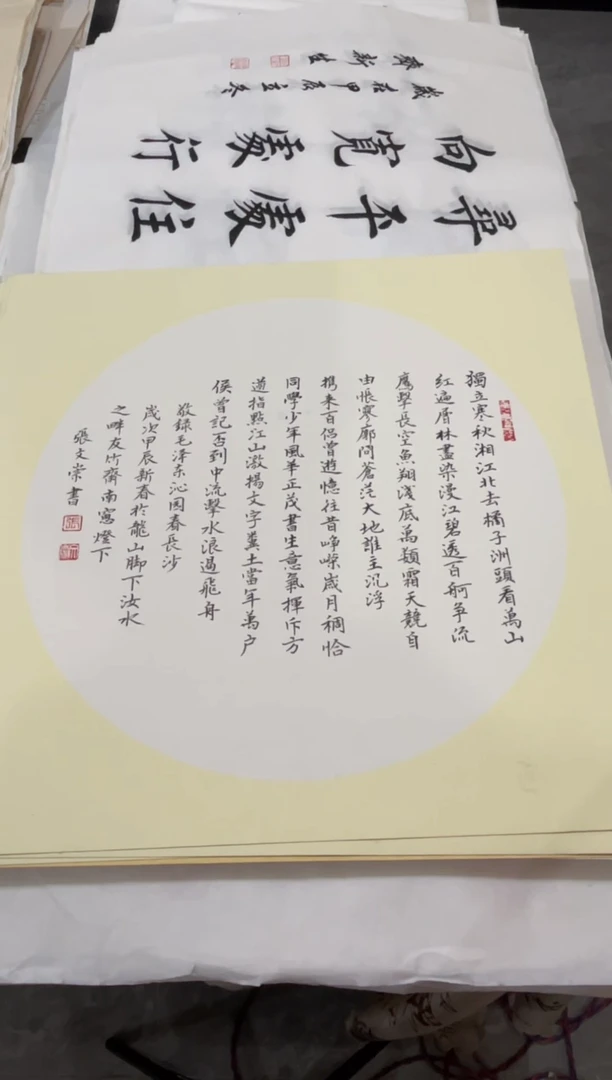 尋平處住
向寬處行
歲在甲辰立冬
新生
獨立寒秋湘江北去橘子洲頭看萬山
紅遍層林盡染漫江碧透百舸爭流
鷹擊長空魚翔淺底萬類霜天競自
由悵寥廓問蒼茫大地誰主沉浮
携來百侶曾遊憶往昔崢嶸歲月稠恰
同學少年風華正茂書生意氣揮斥方
遒指點江山激揚文字糞土當年萬户
侯曾記否到中流擊水浪遏飛舟
敬録毛泽东沁園春長沙
歲次甲辰新春於龍山脚下汝水
之畔友竹齋南窗燈下
張文崇書